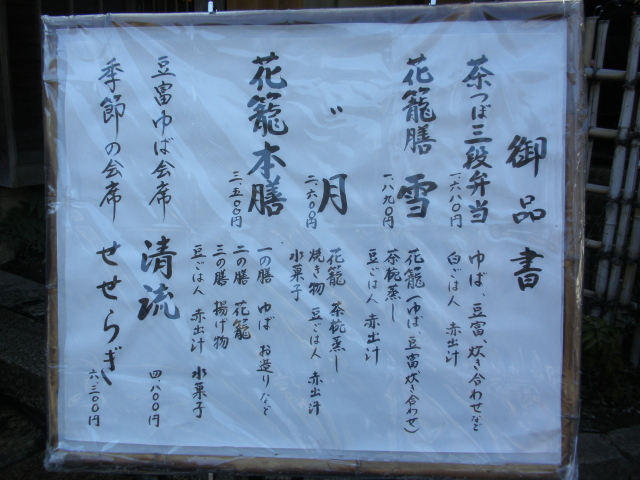 御品書
茶つぼ三段弁当
一、六八〇円
ゆば、豆富、炊き合わせなど
白ごはん 赤出汁
花籠膳 雪
一、八九〇円
花籠(ゆば、豆富、炊き合わせ)
茶椀蒸し
豆ごはん 赤出汁
〃 月
二、六〇〇円
花籠 茶椀蒸し
焼き物 豆ごはん 赤出汁
水菓子
花籠本膳
三、五〇〇円
一の膳 ゆば お造りなど
二の膳 花籠
三の膳 揚げ物
豆ごはん 赤出汁 水菓子
豆富ゆば会席 清流
四、八〇〇円
季節の会席 せせらぎ
六、三〇〇円